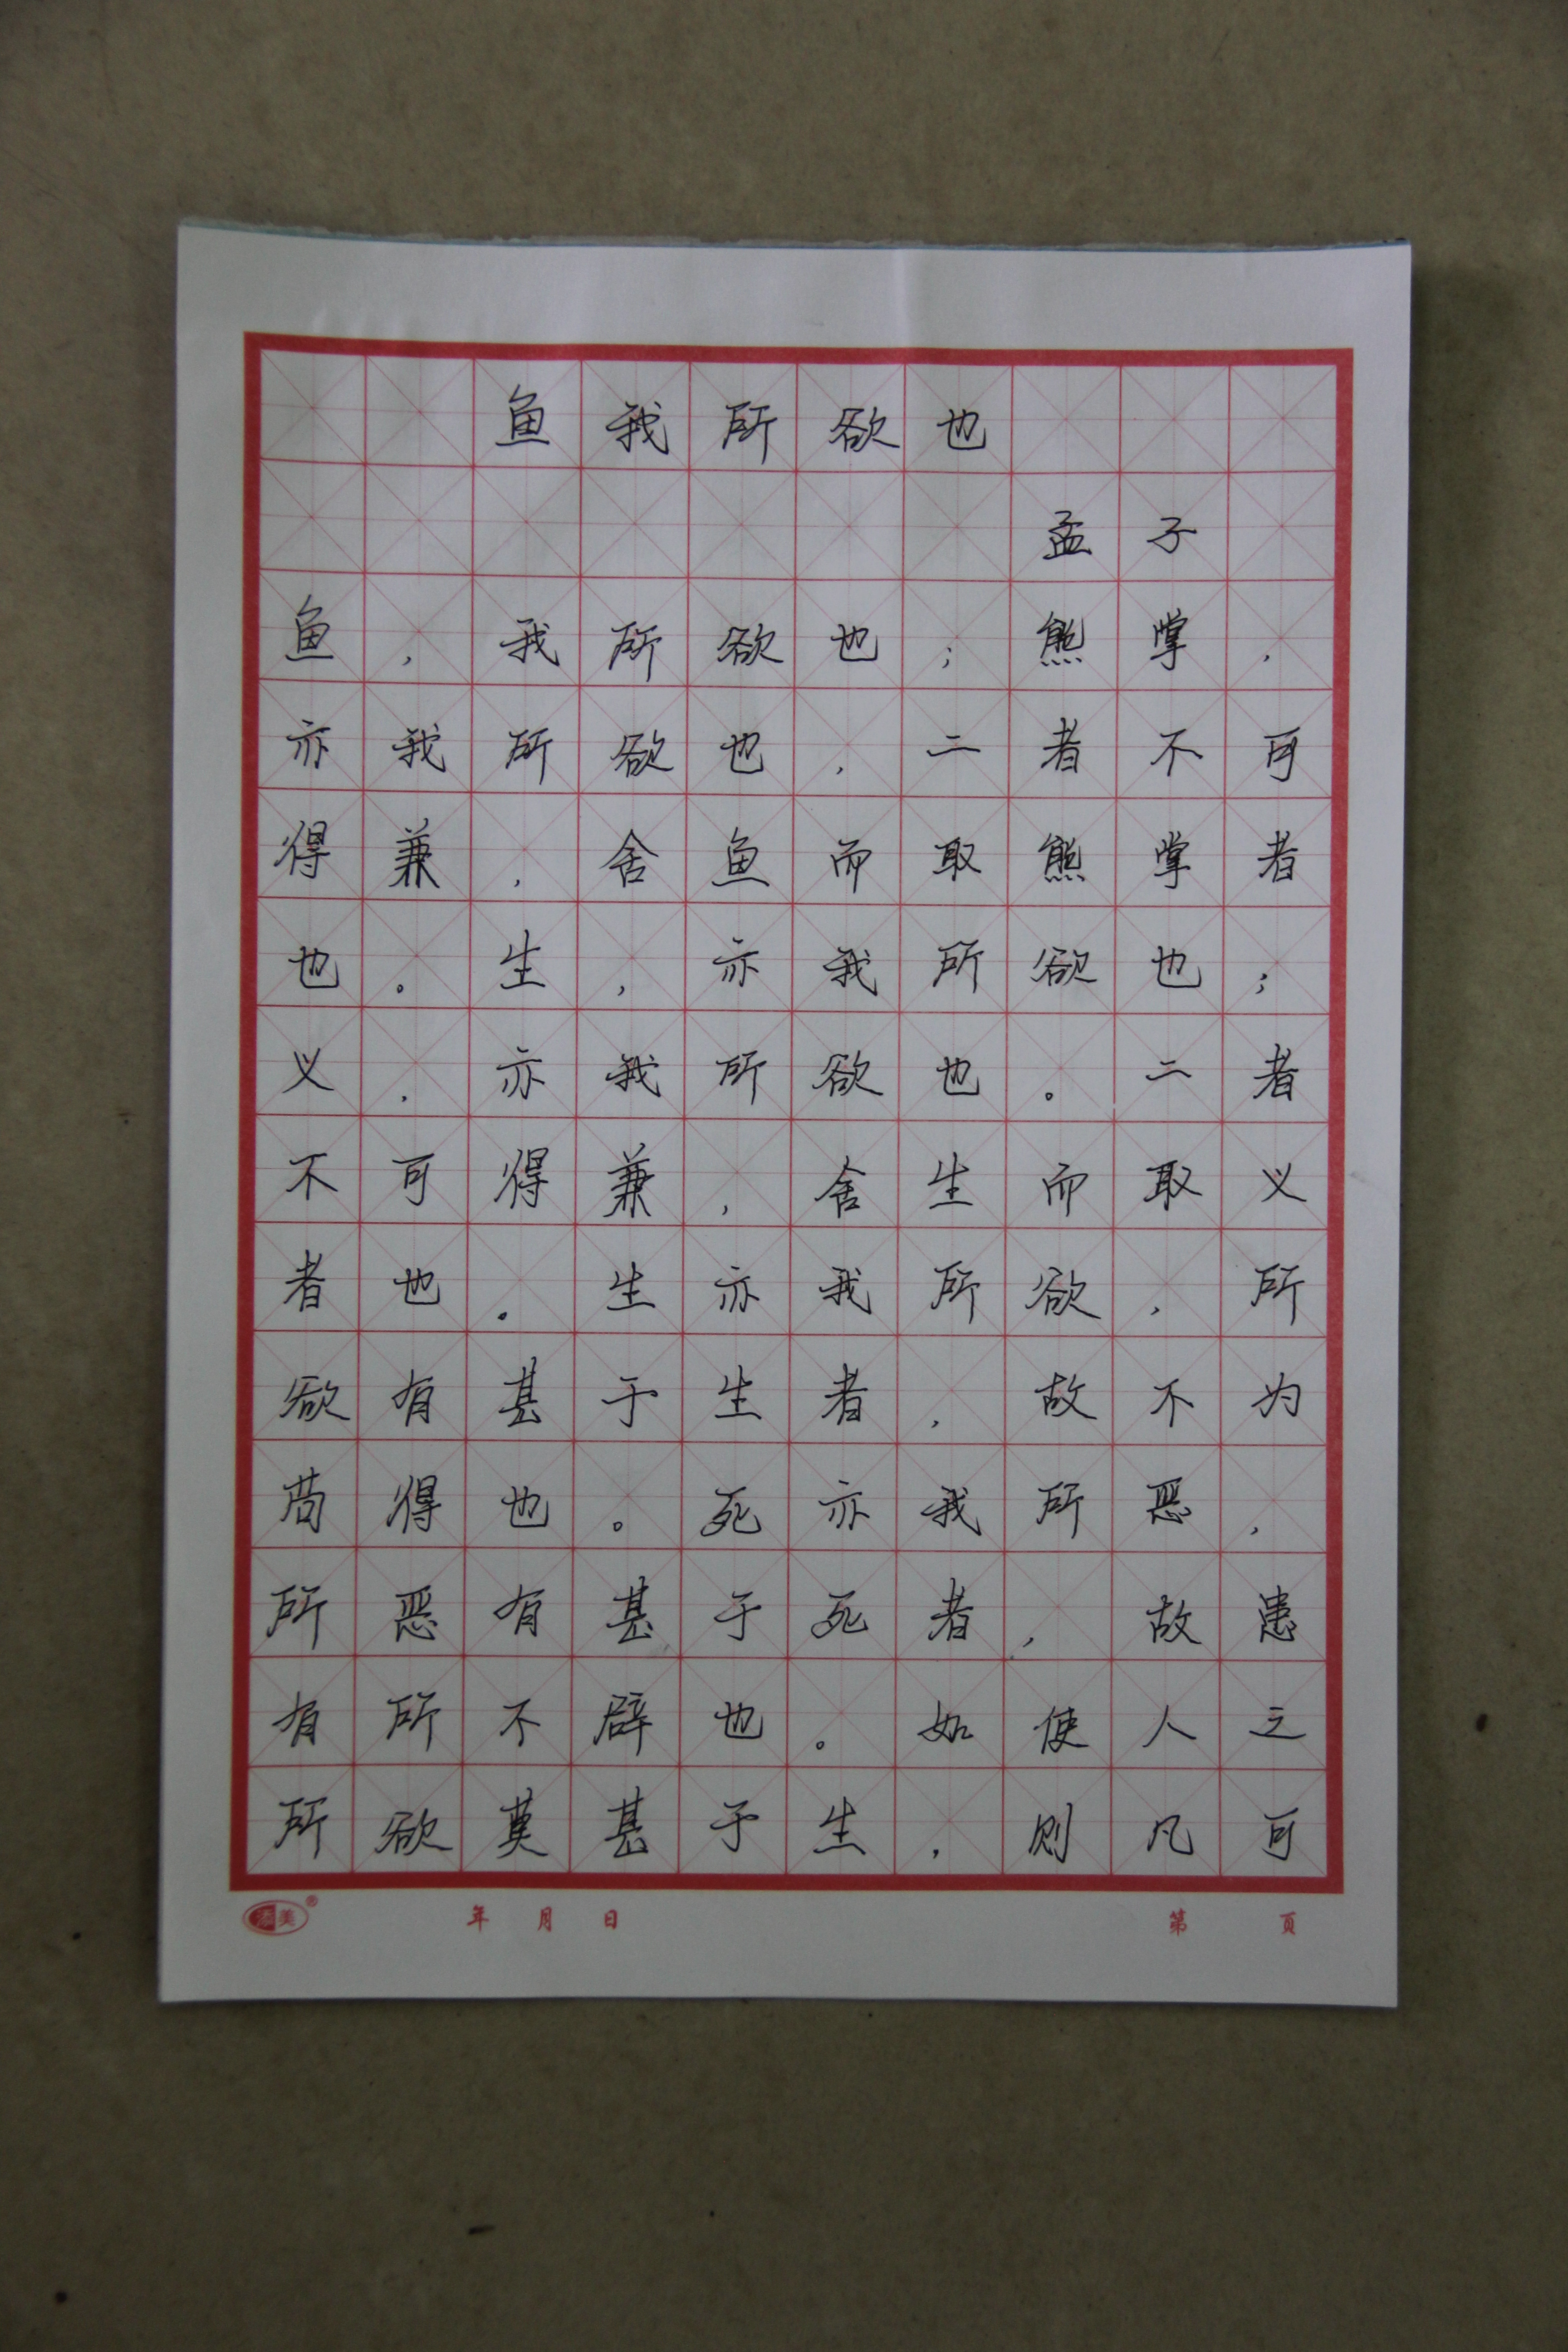 鱼我所欲也
孟子
鱼，我所欲也；熊掌，
亦我所欲也，二者不可
得兼，舍鱼而取熊掌者
也。生，亦我所欲也；
义，亦我所欲也。二者
不可得兼，舍生而取义
者也。生亦我所欲，所
欲有甚于生者，故不为
苟得也。死亦我所恶，
所恶有甚于死者，故患
有所不辟也。如使人之
所欲莫甚于生，则凡可
添美®
年 月 日 第 页